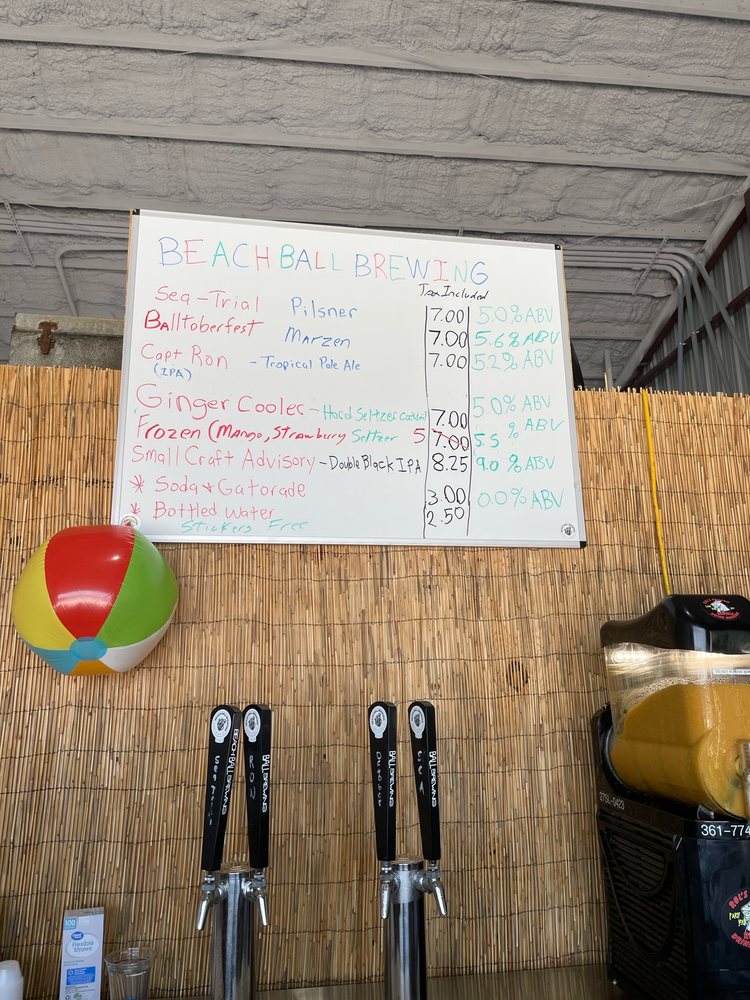 BEACH BALL BREWING
Tax Included
Sea-Trial Pilsner 7.00 5.0% ABV
Balltoberfest Marzen 7.00 5.6% ABV
Capt Ron - Tropical Pale Ale 7.00 5.2% ABV
(IPA)
Ginger Cooler - Hard Seltzer Cocktail 7.00 5.0% ABV
Frozen (Mango, Strawberry Seltzer 5 7.00 5.5 % ABV
Small Craft Advisory - Double Black IPA 8.25 9.0 % ABV
* Soda + Gatorade 3.00 0.0% ABV
* Bottled Water 2.50
Stickers Free
BEACH BALL BREWING
RON
BALL BREWING
BALL BREWING
BALL BREWING
27SL-0423
361-774
100
Flexible
Straws